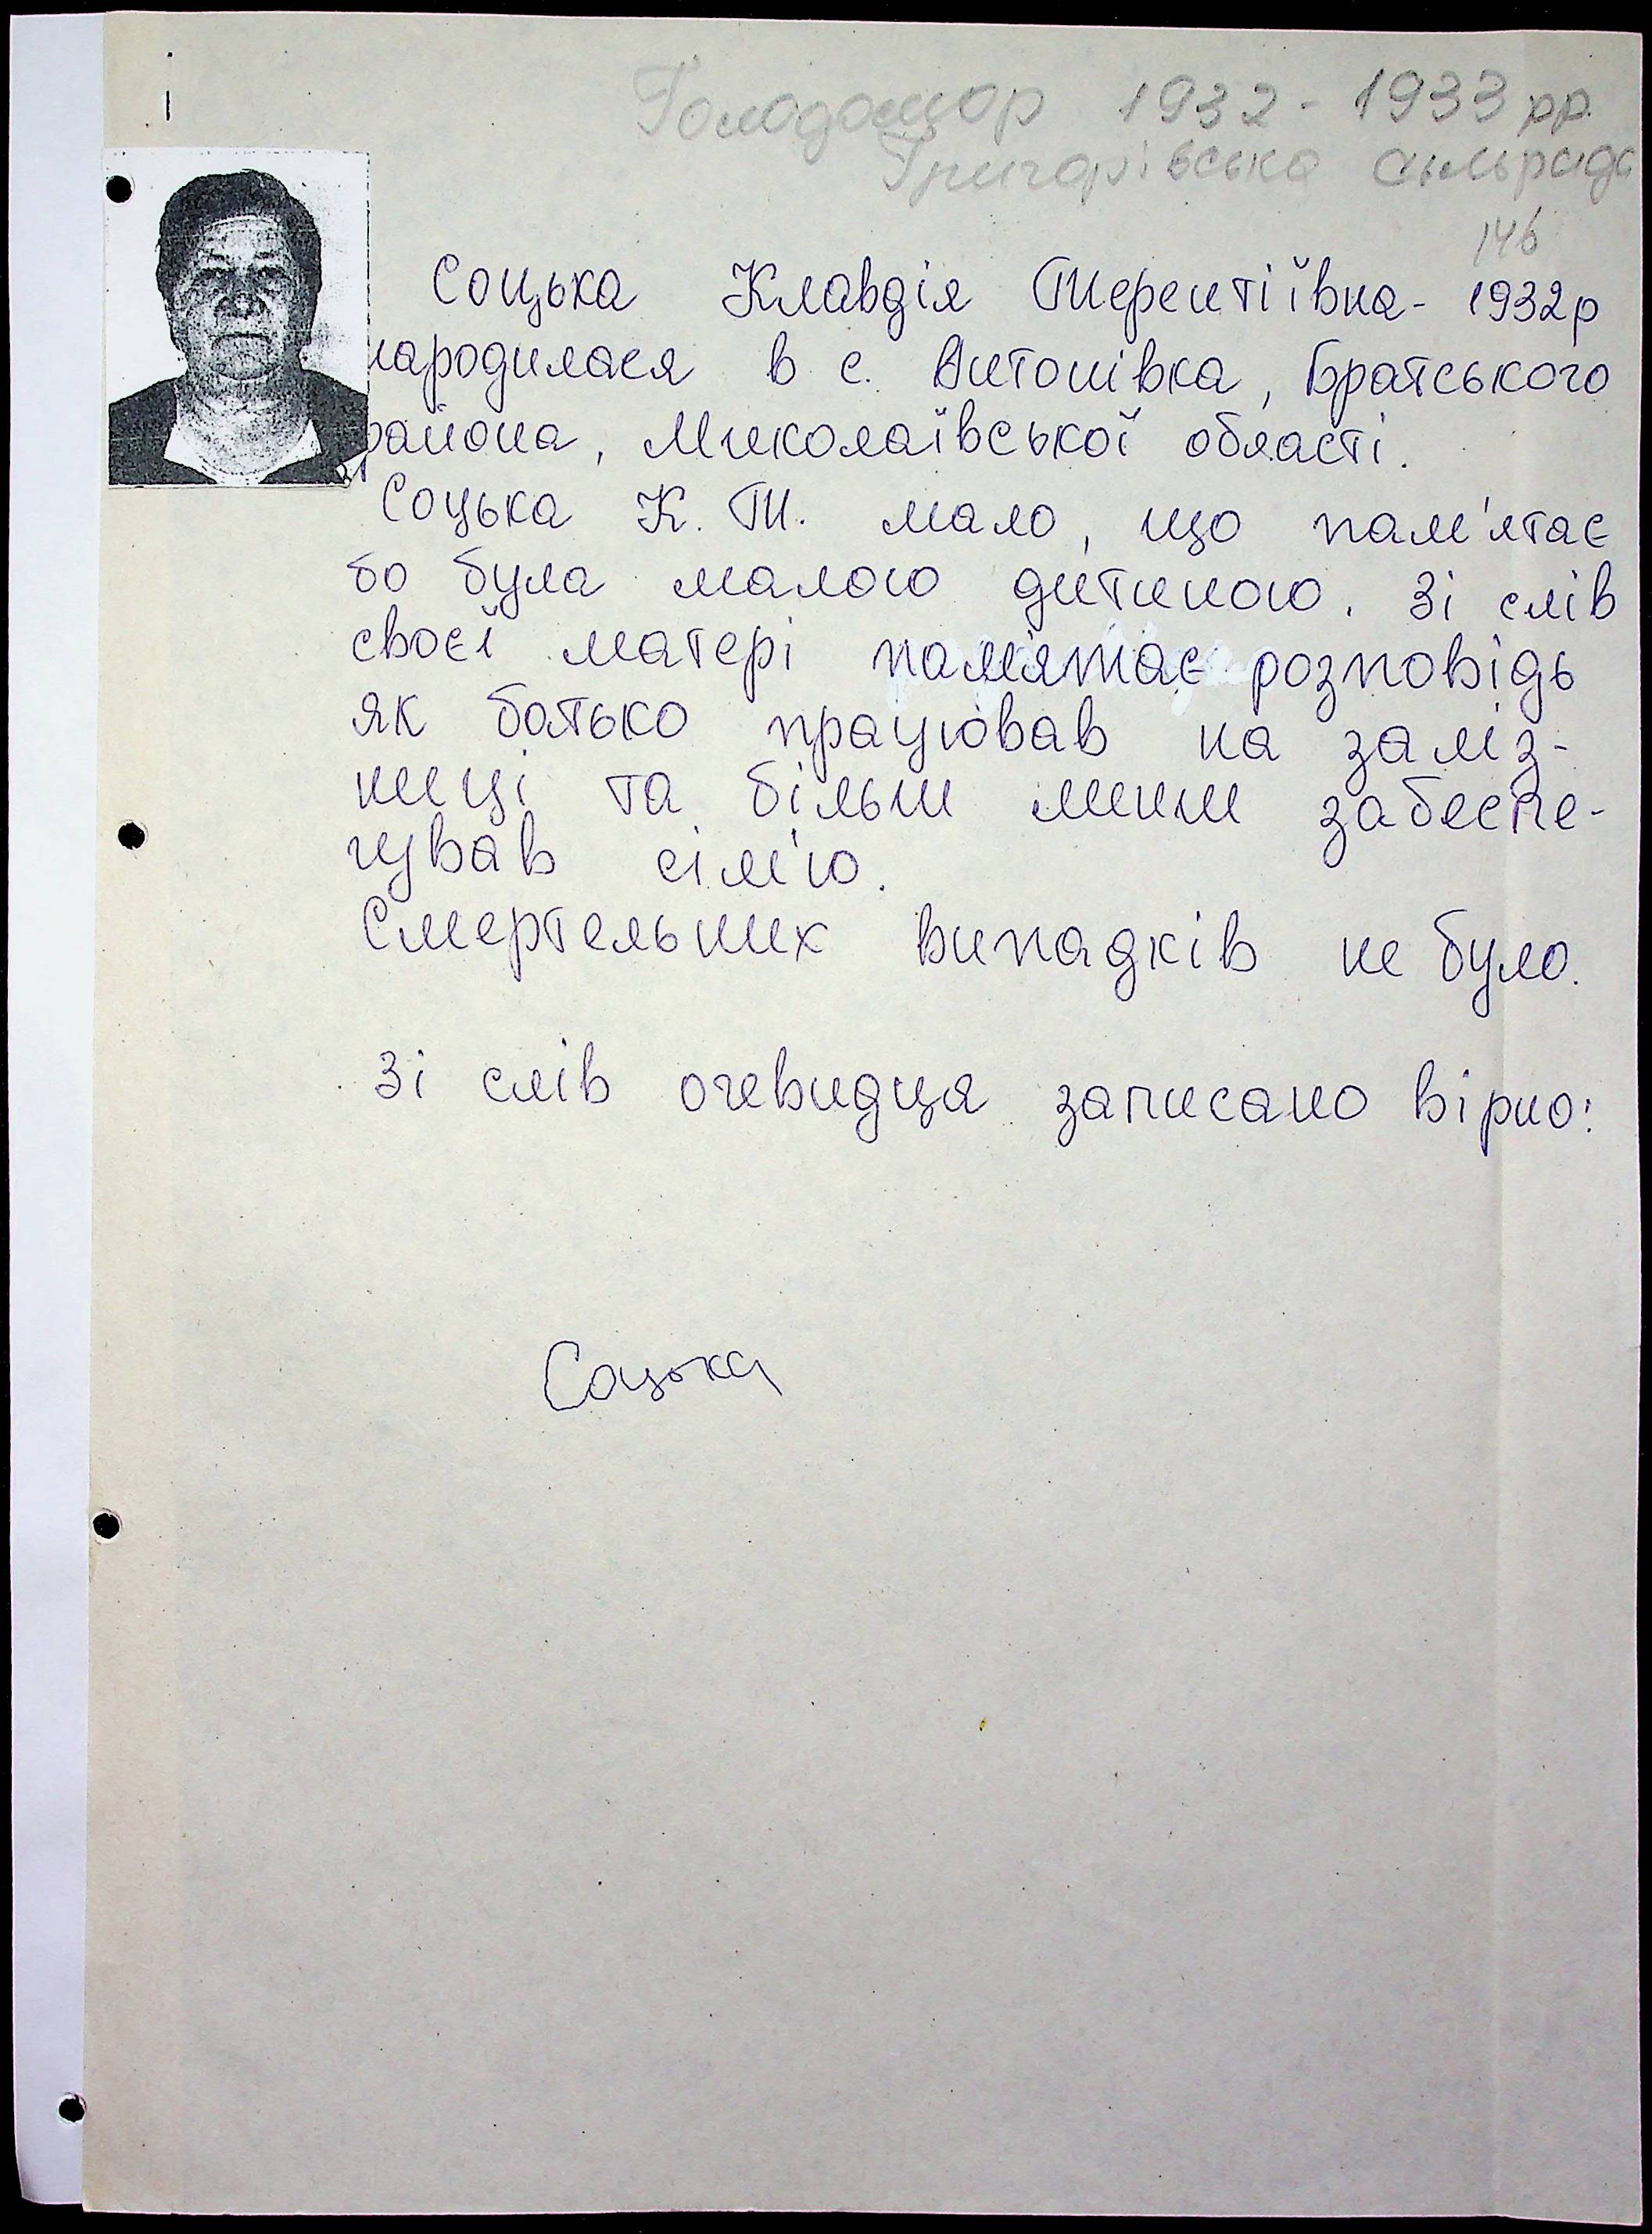 Голодомор 1932-1933 рр.
Григорівська сільрада
146
Соцька Клавдія Терентіївна - 1932р
народилася в с. Антонівка, Братського
района, Миколаївської області.
Соцька К. Т. мало, що пам'ятає
бо була малою дитиною. Зі слів
своєї матері пам'ятає розповідь
як батько працював на заліз-
ниці та більш менш забеспе-
чував сім'ю.
Смертельних випадків не було.
Зі слів очевидця записано вірно:
Соцька